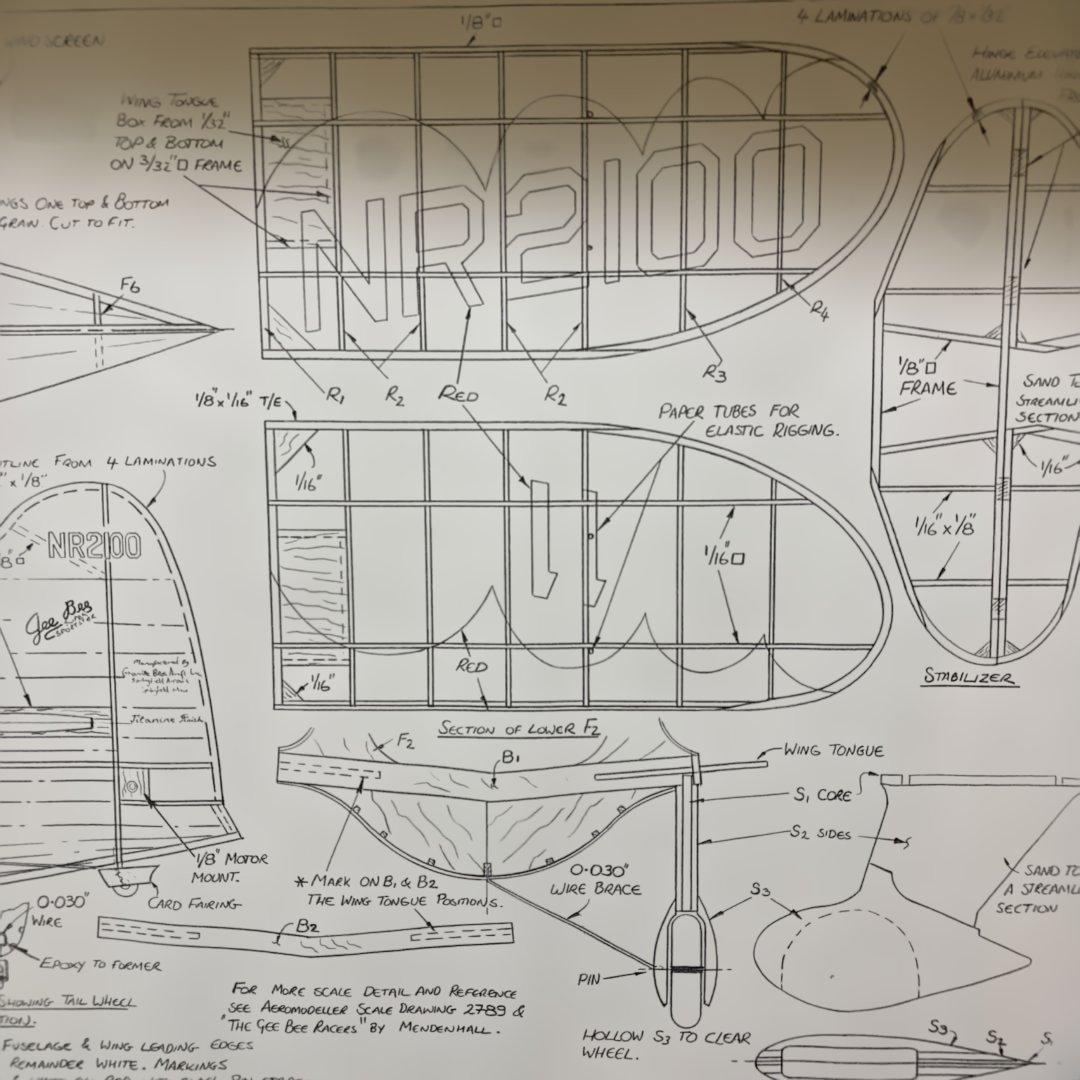 1/8" □
4 LAMINATIONS OF 1/8 x 1/32"
WIND SCREEN
HINGE ELEVAT
ALUMINIUM
WING TONGUE
BOX FROM 1/32"
TOP & BOTTOM
ON 3/32" □ FRAME
NGS ONE TOP & BOTTOM
GRAIN. CUT TO FIT.
NR2100
F6
R4
R3
R1
R2
RED
R2
1/8" x 1/16" T/E
1/8" □
FRAME
SAND TO
STREAMLI
SECTION
PAPER TUBES FOR
ELASTIC RIGGING.
TLINE FROM 4 LAMINATIONS
" x 1/8"
1/16"
1/16"
1/16" x 1/8"
1/16" □
8" □
NR2100
Gee Bee
SPORTSTER
Manufactured By
Springfield Mass
RED
1/16"
STABILIZER
SECTION OF LOWER F2
F2
B1
WING TONGUE
S1 CORE
S2 SIDES
1/8" MOTOR
MOUNT.
* MARK ON B1 & B2
THE WING TONGUE POSITIONS.
0.030"
WIRE BRACE
S3
SAND TO
A STREAML
SECTION
CARD FAIRING
0.030"
WIRE
B2
EPOXY TO FORMER
PIN
SHOWING TAIL WHEEL
TION.
FOR MORE SCALE DETAIL AND REFERENCE
SEE AEROMODELLER SCALE DRAWING 2789 &
"THE GEE BEE RACERS" BY MENDENHALL.
HOLLOW S3 TO CLEAR
WHEEL.
S3
S2
S1
FUSELAGE & WING LEADING EDGES
REMAINDER WHITE. MARKINGS